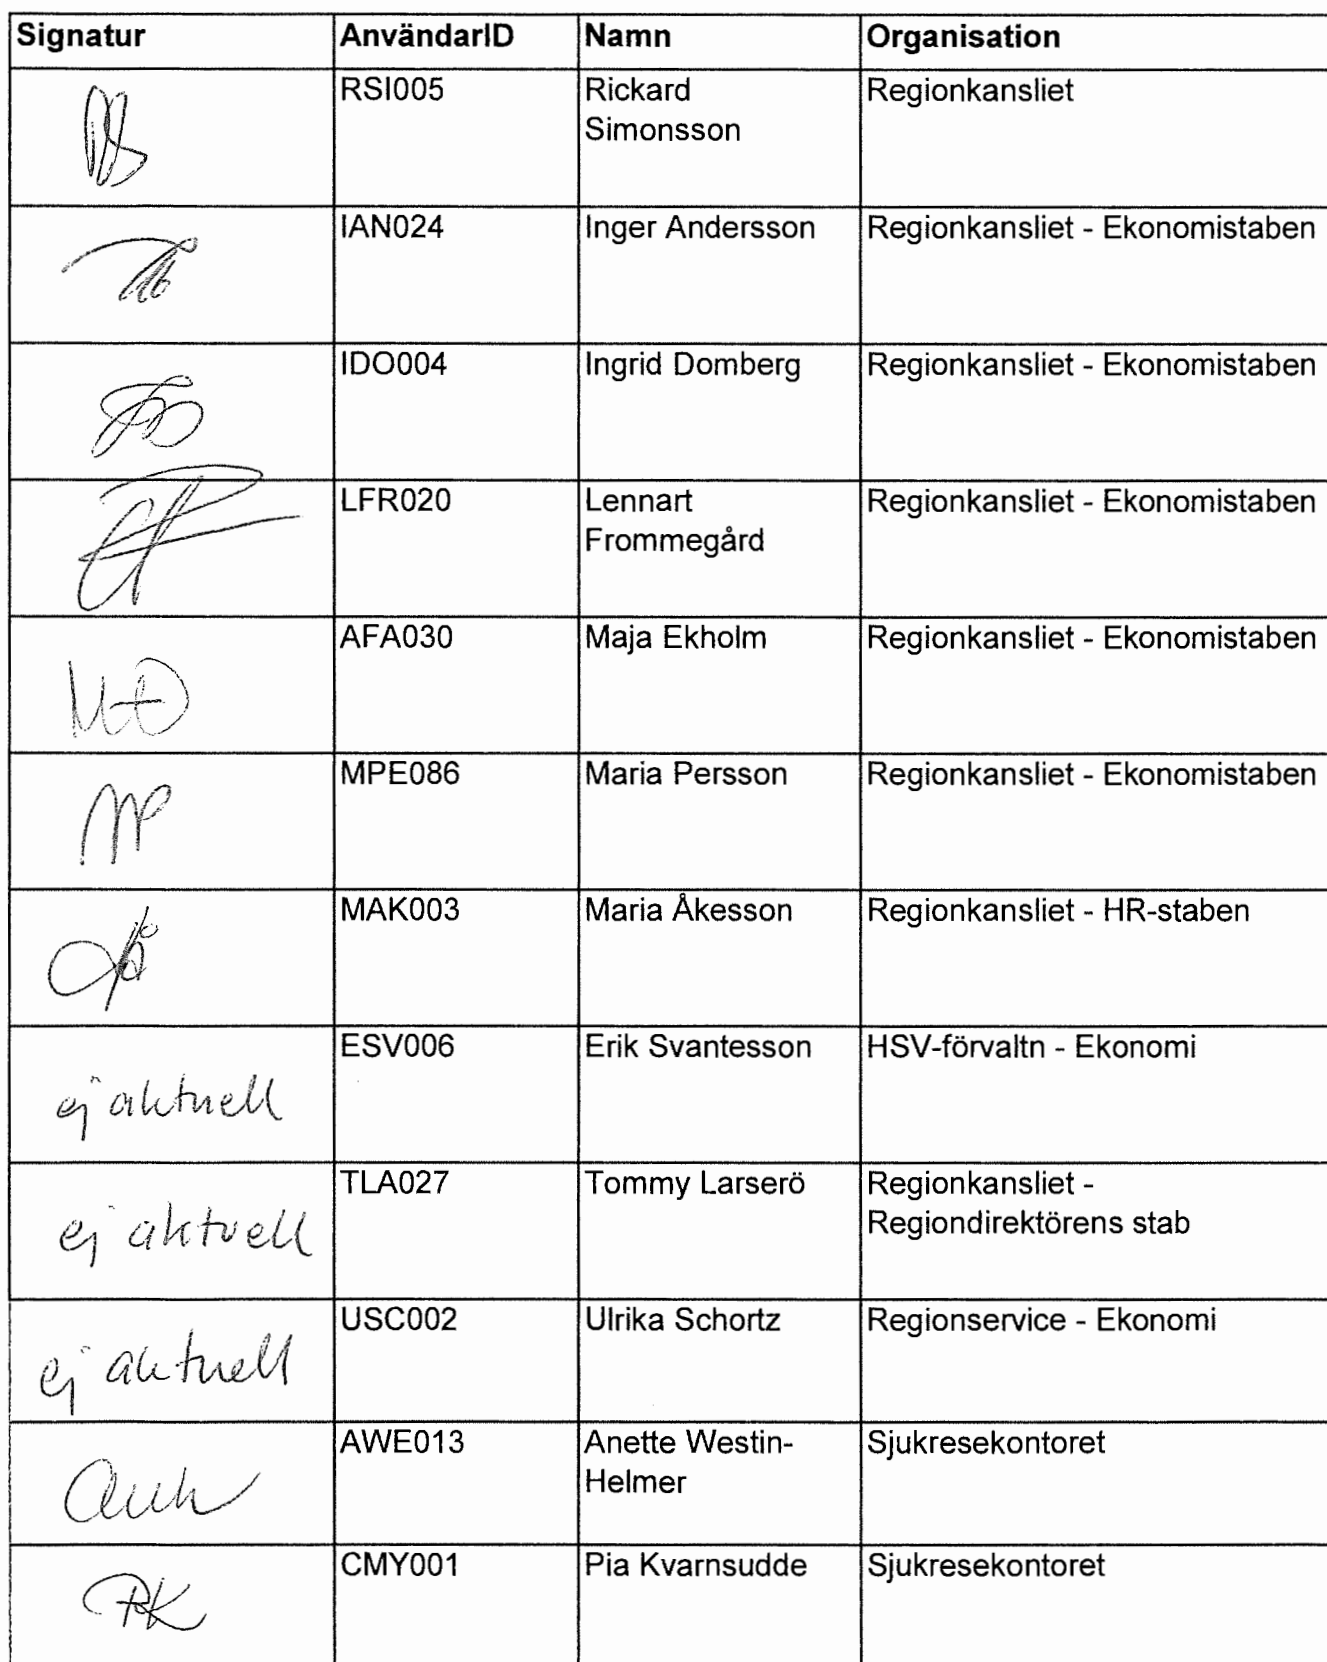 Signatur AnvändarID Namn Organisation
RSI005 Rickard Regionkansliet
Simonsson
IAN024 Inger Andersson Regionkansliet - Ekonomistaben
IDO004 Ingrid Domberg Regionkansliet - Ekonomistaben
LFR020 Lennart Regionkansliet - Ekonomistaben
Frommegård
AFA030 Maja Ekholm Regionkansliet - Ekonomistaben
MPE086 Maria Persson Regionkansliet - Ekonomistaben
MP
MAK003 Maria Åkesson Regionkansliet - HR-staben
ESV006 Erik Svantesson HSV-förvaltn - Ekonomi
ej aktuell
TLA027 Tommy Larserö Regionkansliet -
ej aktuell Regiondirektörens stab
USC002 Ulrika Schortz Regionservice - Ekonomi
ej aktuell
AWE013 Anette Westin- Sjukresekontoret
Helmer
CMY001 Pia Kvarnsudde Sjukresekontoret
PK